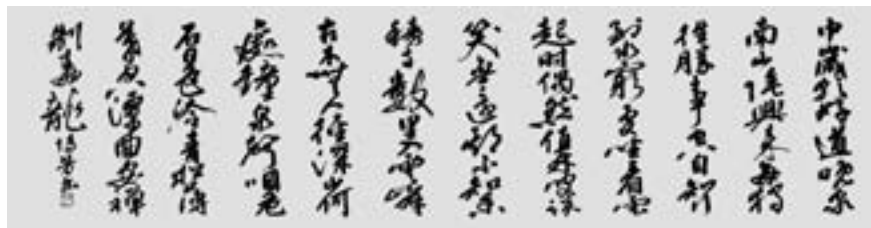 中歲頗好道晚家
南山陲興來每獨
往勝事空自知
行到水窮處坐看雲
起时偶然值林叟談
笑無還期不知香
積寺數里入雲峰
古木無人徑深山何
處鐘泉聲咽危
石日色冷青松薄
暮空潭曲安禪
制毒龍